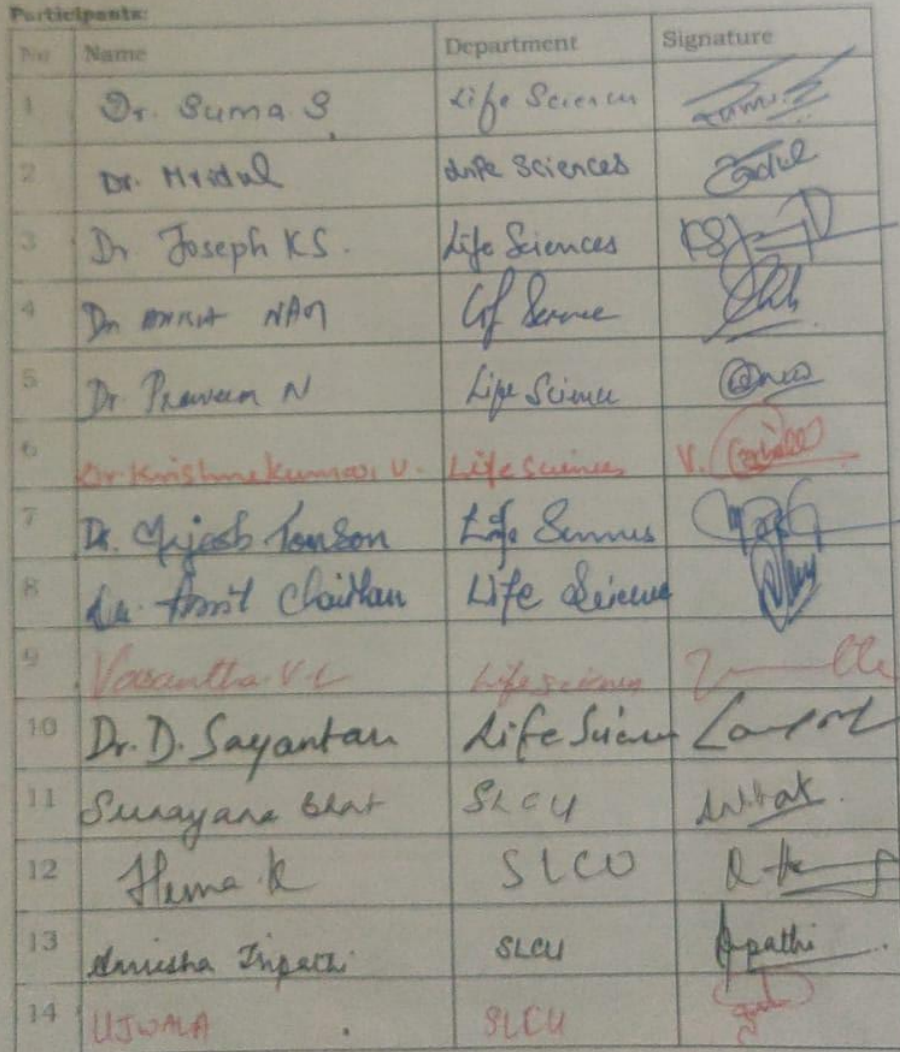 Participants:
No Name Department Signature
1 Dr. Suma. S Life Sciences
2 Dr. Mridul Life Sciences
3 Dr Joseph KS. Life Sciences KSJ
4 Dr NAG Life Science
5 Dr Praveen N Life Science
6 Dr Krishnakumar V. Life Sciences V.
7 Dr. Jonson Life Sciences
8 Dr. Amit Chaithan Life Science
9 Vasantha. V. L Life sciences
10 Dr. D. Sayantan Life Science
11 Sunayana Bhat SLCU
12 Hema. K SLCU
13 Anusha Tripathi SLCU
14 UJWALA SLCU